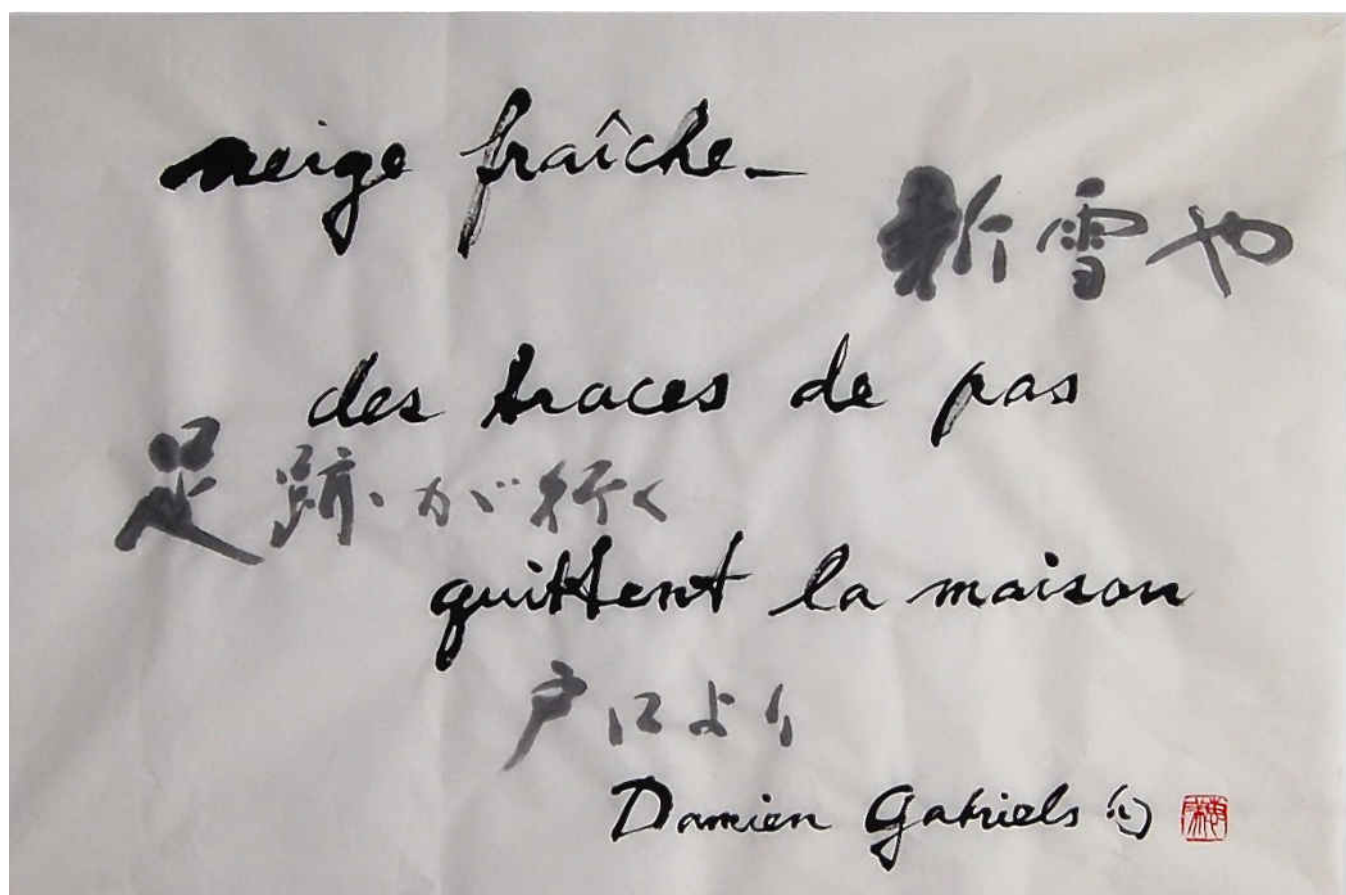 neige fraîche_
新雪や
des traces de pas
足跡が行く
quittent la maison
戸口より
Damien Gabriels 句